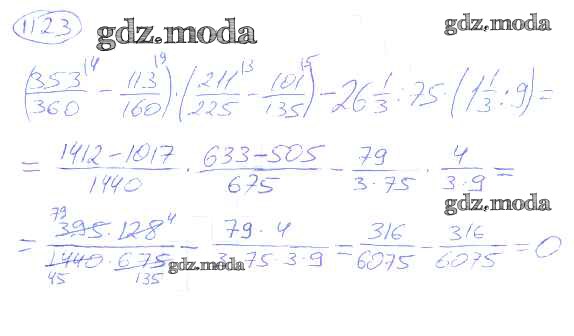 1123
gdz.moda
gdz.moda
(353/360 ^4 − 113/160 ^9) · (211/225 ^3 − 101/135 ^5) − 26 1/3 : 75 · (1 1/3 : 9) =
= (1412 − 1017)/1440 · (633 − 505)/675 − 79/(3 · 75) · 4/(3 · 9) =
gdz.moda
= (395 ^79 · 128 ^4)/(1440 _45 · 675 _135) − (79 · 4)/(3 · 75 · 3 · 9) = 316/6075 − 316/6075 = 0
gdz.moda